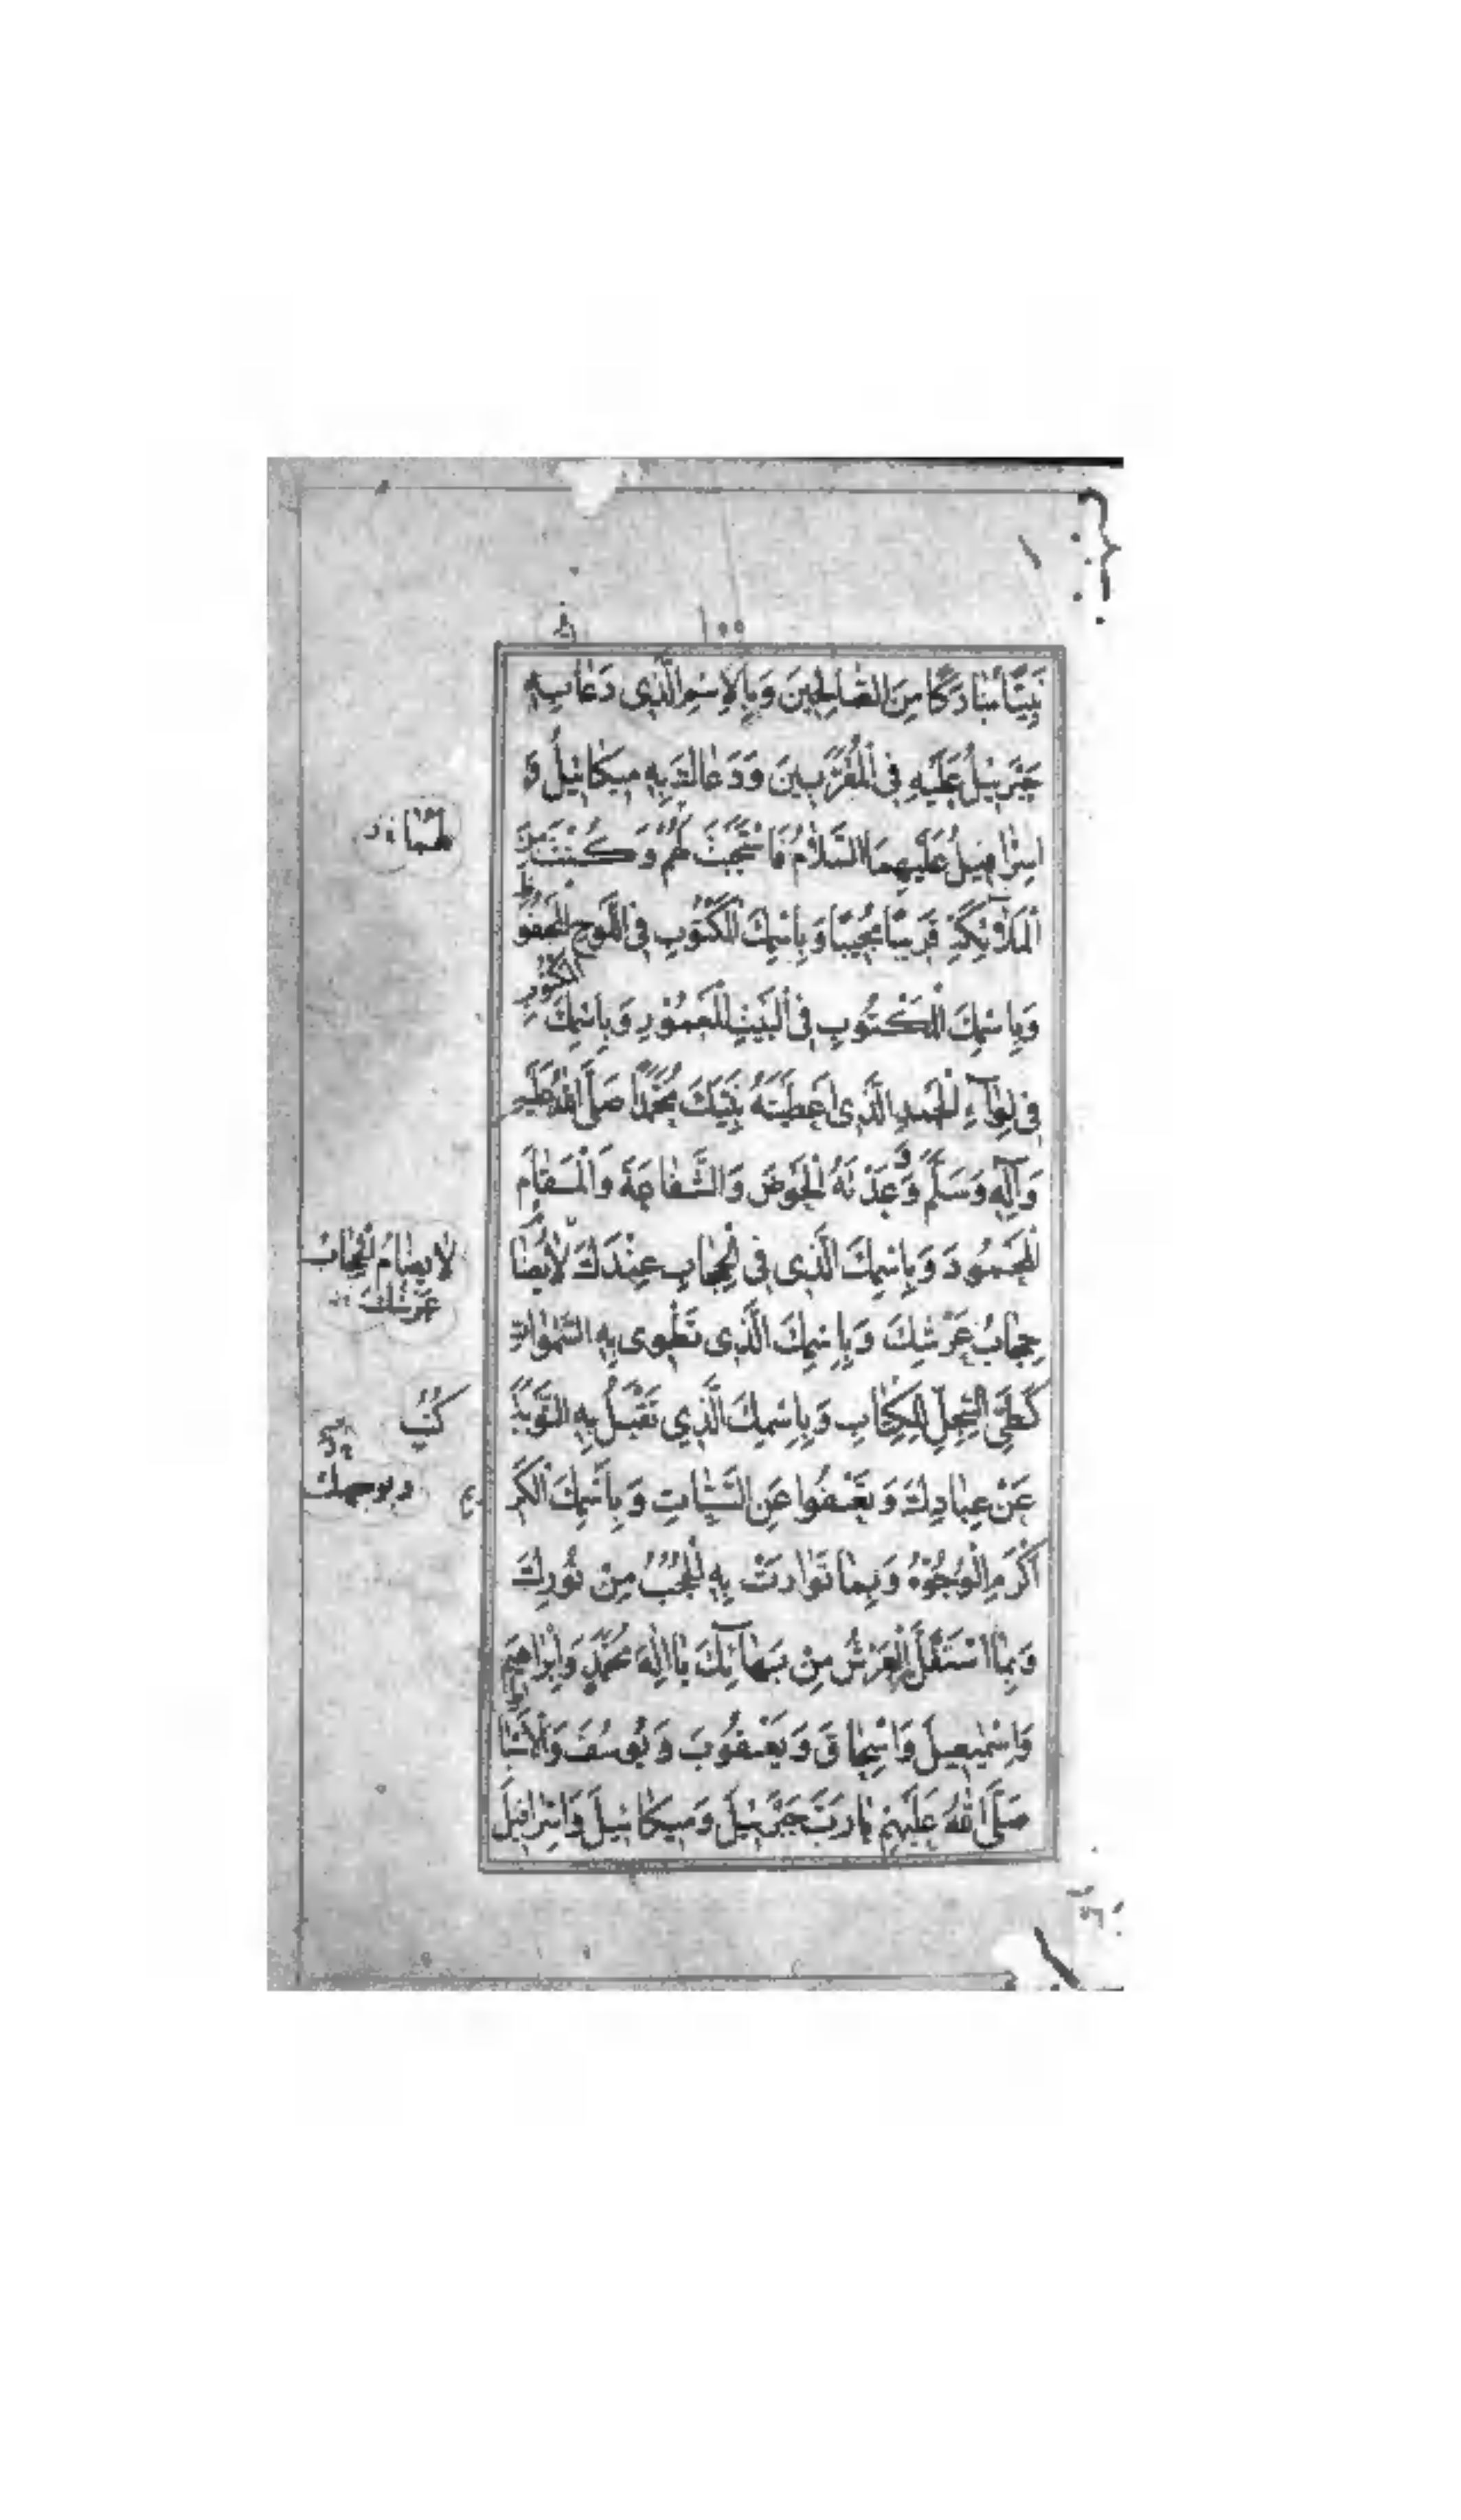 ١٠٠
نَبِيًّا مُبٰارَكًا مِنَ الصّٰالِحِينَ وَبِالْاِسْمِ الَّذِى دَعٰا بِهِ
جَبْرَئِيلُ عَلَيْهِ فِى الْمُقَرَّبِينَ وَدَعٰالَكَ بِهِ مِيكٰائِيلُ وَ
اِسْرٰافِيلُ عَلَيْهِمَا السَّلٰامُ فَاسْتَجَبْتَ لَهُمْ وَكُنْتَ مِنَ
الْمَلٰٓائِكَةِ قَرِيبًا مُجِيبًا وَبِاسْمِكَ الْمَكْتُوبِ فِى اللَّوْحِ الْمَحْفُوظِ
وَبِاسْمِكَ الْمَكْتُوبِ فِى الْبَيْتِ الْمَعْمُورِ وَبِاسْمِكَ الْمَكْتُوبِ
فِى لِوٰآءِ الْحَمْدِ الَّذِى اَعْطَيْتَهُ نَبِيَّكَ مُحَمَّدًا صَلَّى اللهُ عَلَيْهِ
وَآلِهِ وَسَلَّمَ وَوَعَدْتَهُ الْحَوْضَ وَالشَّفٰاعَةَ وَالْمَقٰامَ
الْمَحْمُودَ وَبِاسْمِكَ الَّذِى فِى الْحِجٰابِ عِنْدَكَ لٰا يُضٰامُ
حِجٰابُ عَرْشِكَ وَبِاسْمِكَ الَّذِى تَطْوِى بِهِ السَّمٰوٰاتِ
كَطَىِّ السِّجِلِّ لِلْكِتٰابِ وَبِاسْمِكَ الَّذِي تَقْبَلُ بِهِ التَّوْبَةَ
عَنْ عِبٰادِكَ وَتَعْفُوا عَنِ السَّيِّئٰاتِ وَبِاسْمِكَ الْكَرِ
اَكْرَمِ الْوُجُوهِ وَبِمٰا تَوٰارَتْ بِهِ الْحُجُبُ مِنْ نُورِكَ
وَبِمَا اسْتَقَلَّ بِهِ الْعَرْشُ مِنْ بَهٰآئِكَ يٰا اِلٰهَ مُحَمَّدٍ وَاِبْرٰاهِيمَ
وَاِسْمٰعِيلَ وَاِسْحٰاقَ وَيَعْقُوبَ وَيُوسُفَ وَالْاَسْبٰاطِ
صَلَّى اللهُ عَلَيْهِمْ يٰا رَبَّ جَبْرَئِيلَ وَمِيكٰائِيلَ وَاِسْرٰافِيلَ
لا يضام لحجاب
عرشك
كتب
وبوجهك